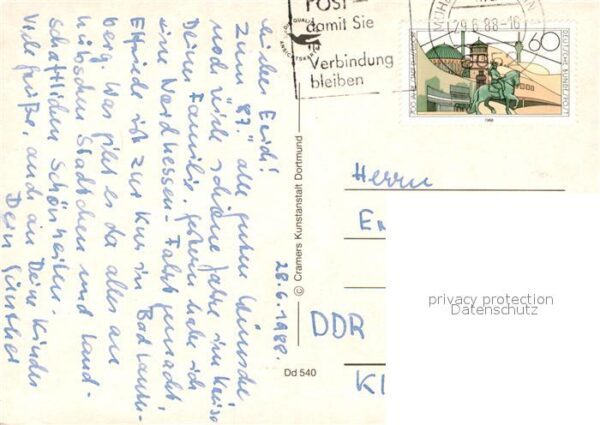 Lieber Erich!
Zum 87. alle guten Wünsche
noch viele schöne Jahre im Kreise
Deiner Familie. Gestern habe ich
eine Nordhessen-Fahrt gemacht,
Elfriede ist zur Kur in Bad
berg. Was gibt es da alles an
hübschen Städtchen und Land-
schaftlichen Schönheiten.
Viele Grüße, auch an Deine Kinder
Dein Günther
28.6.1988.
© Cramers Kunstanstalt Dortmund
Dd 540
POST
damit Sie
in
Verbindung
bleiben
29.6.88-16
60
DEUTSCHE BUNDESPOST
1988
Herrn
DDR
privacy protection
Datenschutz